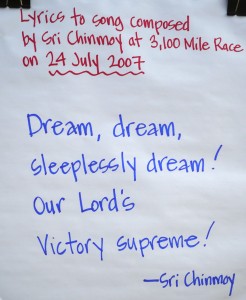 Lyrics to song composed
by Sri Chinmoy at 3,100 Mile Race
on 24 July 2007
Dream, dream,
sleeplessly dream!
Our Lord's
Victory supreme!
—Sri Chinmoy